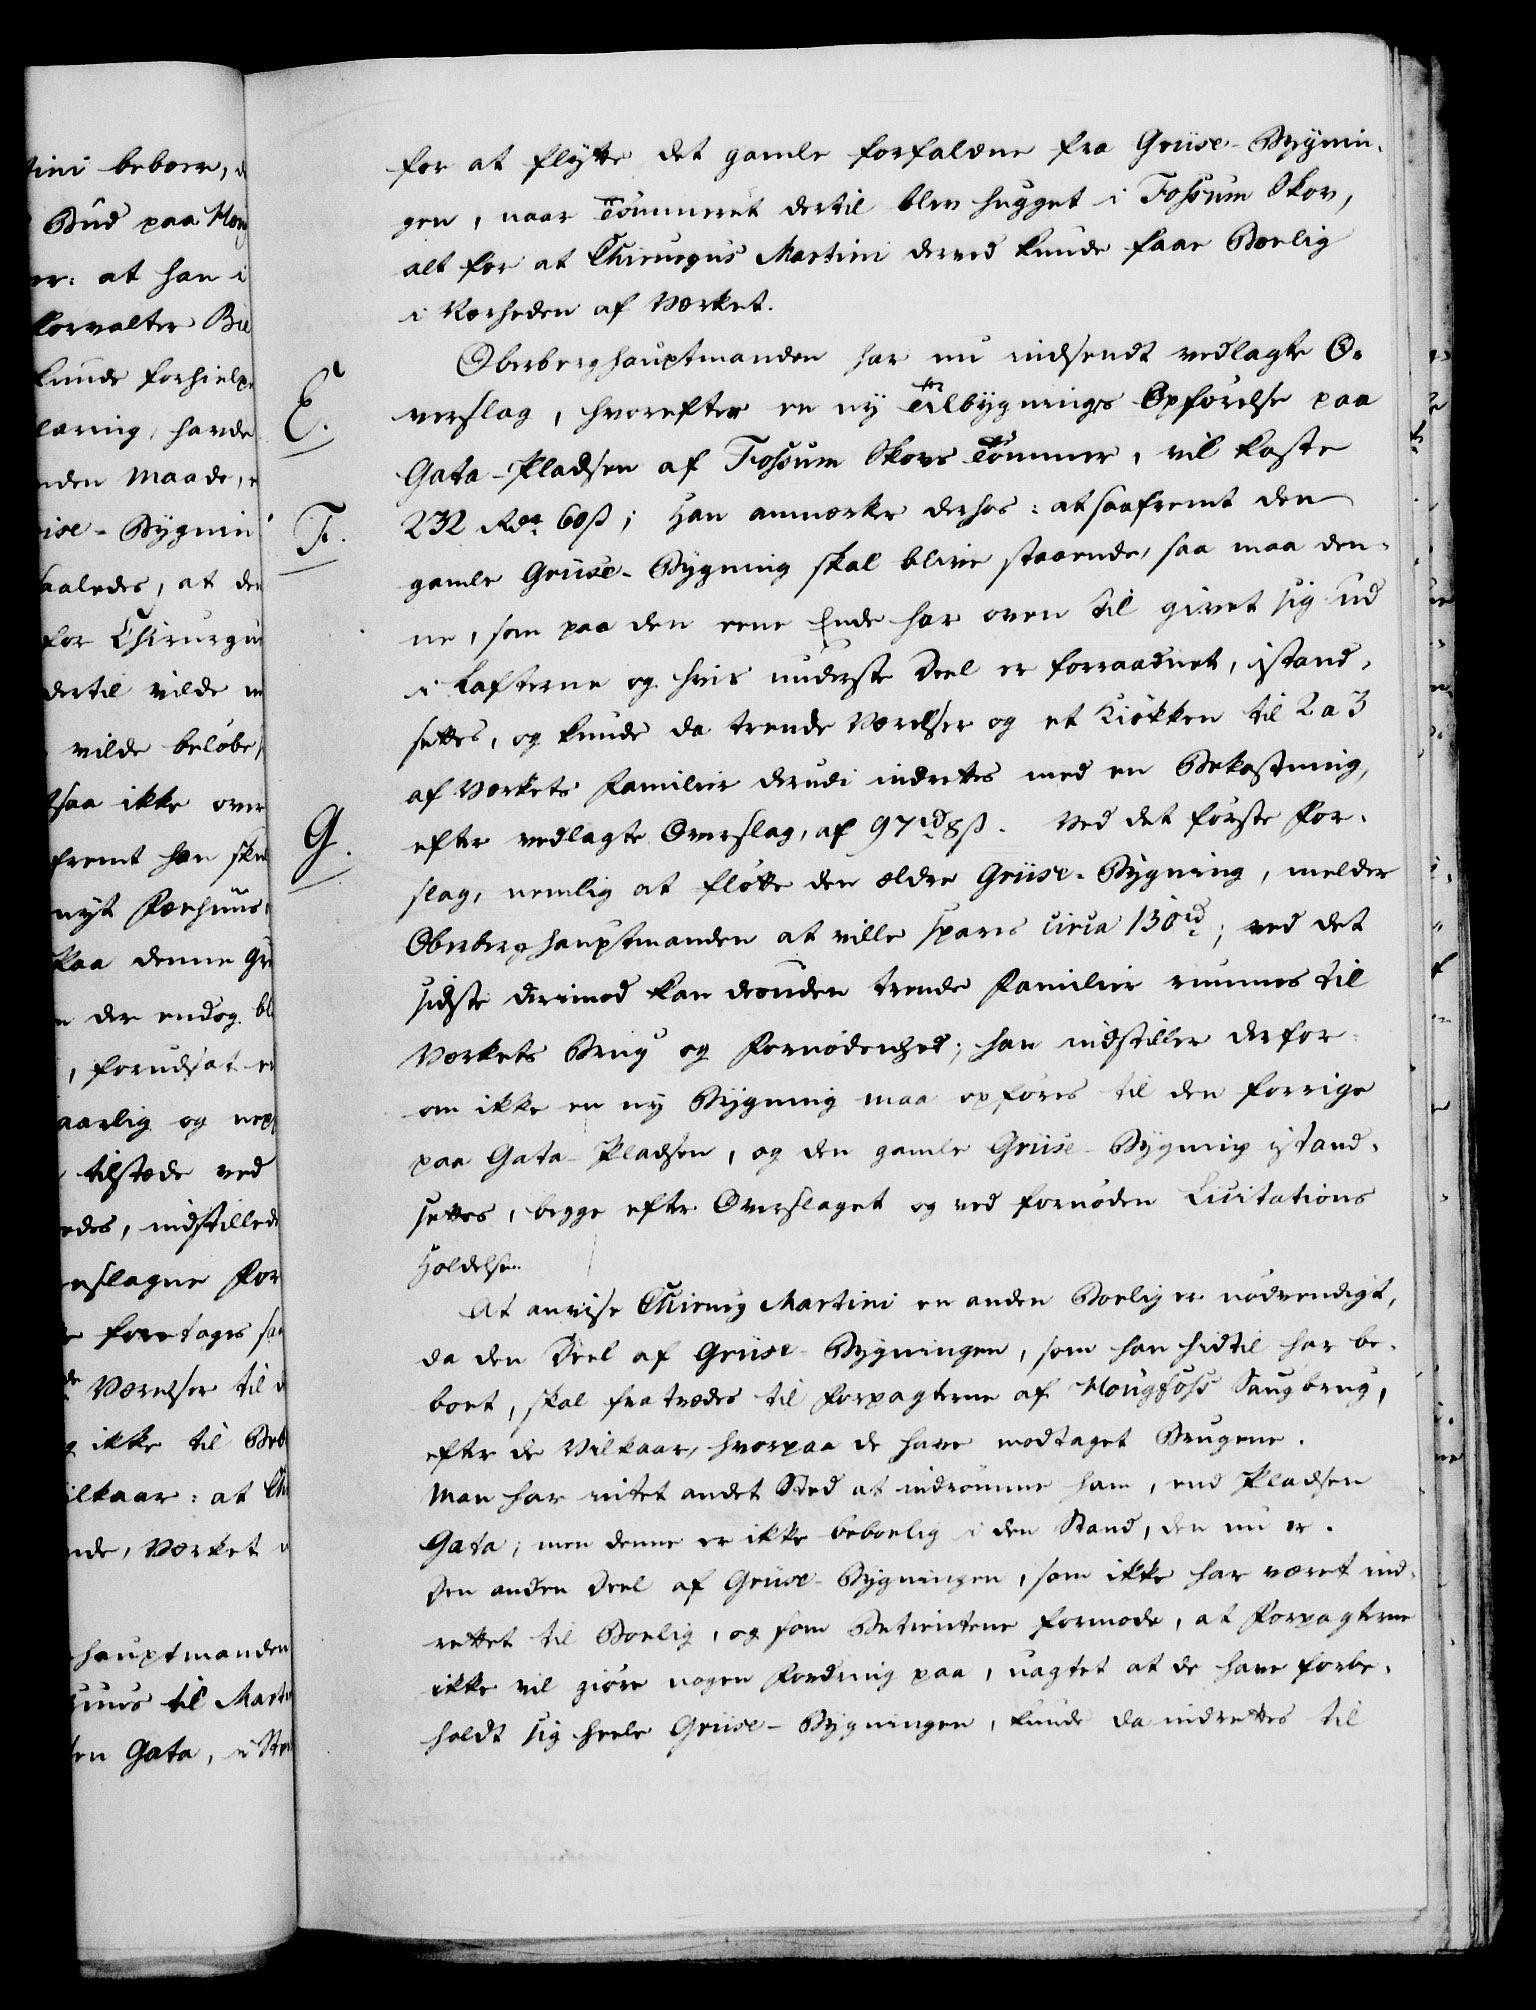 tini beboer, d
Bud paa Houg
er: at han i
Forvalter Bie
kunde forhielpe
læring, havde
nden Maade, e
iise-Bygnin
aaledes, at den
for Chirurgus
dertil vilde
vilde beløbe,
saa ikke over
fremt han skul
nyt Fæehuus,
paa denne Gr
der endog bl
, forudsat er
aarlig og nep
tilstæde ved
edes, indstillede
enslagne For
foretages saa
Værelser til
ikke til Beb
ilkaar: at Chi
nde, Værket
hauptmanden
huus til Marti
en Gata, i
for at flytte det gamle forfaldne fra Griise-Bygnin-
gen, naar Tömmeret dertil blev hugget i Fossum Skov,
alt for at Chirurgus Martini derved kunde faae Boelig
i Nærheden af Værket.
Oberberghauptmanden har nu indsendt vedlagte O-
E.
verslag, hvorefter en ny Tilbygnings Opförelse paa
Gata-Pladsen af Fossum Skovs Tömmer, vil koste
F.
232 Rdr 60 ß; Han anmærker derhos: at saafremt den
gamle Griise-Bygning skal blive staaende, saa maa den-
ne, som paa den eene Ende har oven til givet sig ud
i Lafterne og hvis underste Deel er forraadnet, istand-
settes, og kunde da trende Værelser og et Kiökken til 2 a 3
af Værkets Familier derudi indrettes med en Bekostning,
G.
efter vedlagte Overslag, af 97 rd 8 ß. Ved det förste For-
slag, nemlig at flötte den ældre Griise-Bygning, melder
Oberberghauptmanden at ville spares circa 130 rd; ved det
sidste derimod kan desuden trende Familier rummes til
Værkets Brug og Fornödenhed; han indstiller derfor
om ikke en ny Bygning maa opföres til den forrige
paa Gata-Pladsen, og den gamle Griise-Bygning istand-
settes, begge efter Overslaget og ved fornöden Licitations
Holdelse.
At anvise Chirurg Martini en anden Boelig er nödvendigt,
da den Deel af Griise-Bygningen, som han hidtil har be-
boet, skal fratrædes til Forpagterne af Hougfoss Saugbrug,
efter de Vilkaar, hvorpaa de have modtaget Brugene.
Man har intet andet Sted at indrömme ham, end Pladsen
Gata; men denne er ikke beboelig i den Stand, den nu er.
Den anden Deel af Griise-Bygningen, som ikke har været ind-
rettet til Boelig, og som Betientene formode, at Forpagterne
ikke vil giöre nogen Fordring paa, uagtet at de have forbe-
holdt sig heele Griise-Bygningen, kunde da indrettes til